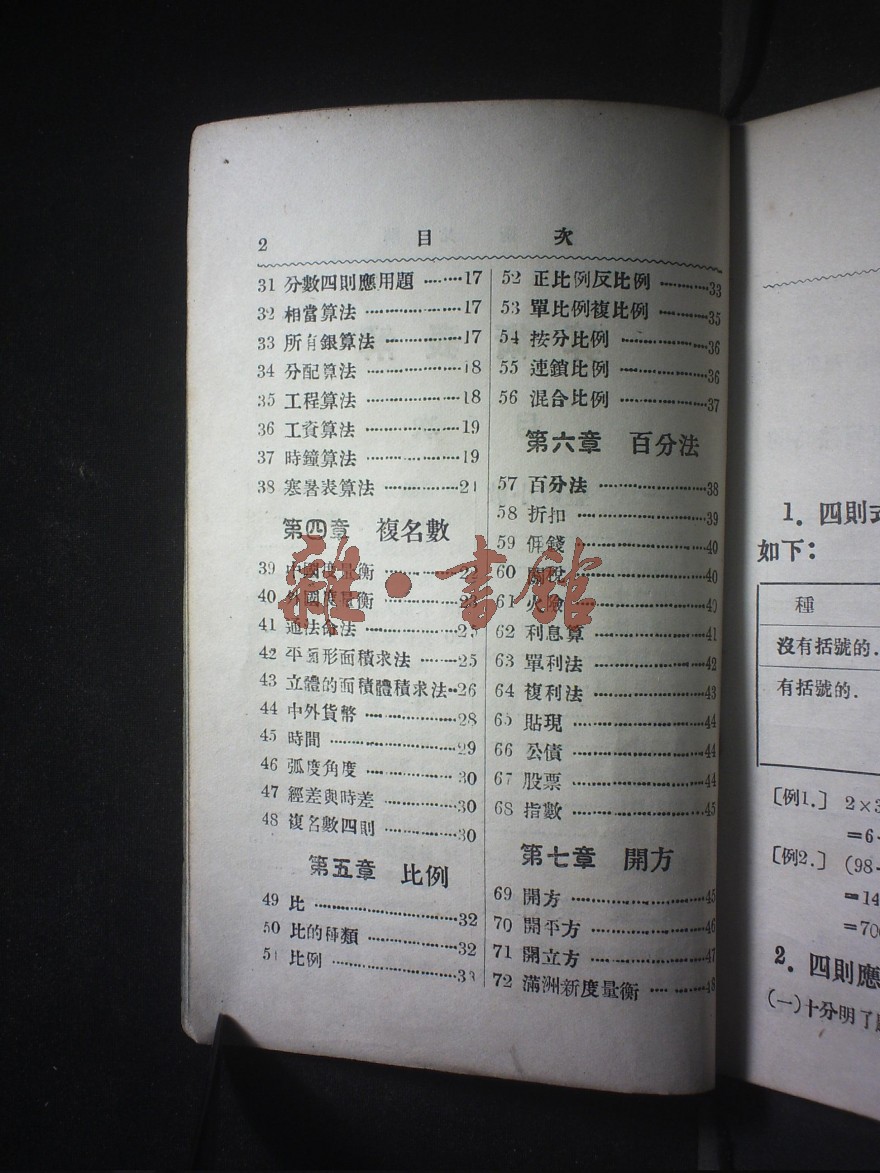 2 目 次
31 分數四則應用題 ········17
32 相當算法 ················17
33 所有銀算法 ············17
34 分配算法 ················18
35 工程算法 ················18
36 工資算法 ················19
37 時鐘算法 ················19
38 寒暑表算法 ············21
第四章 複名數
39 中國度量衡 ············22
40 外國度量衡 ············23
41 通法命法 ················25
42 平面形面積求法 ········25
43 立體的面積體積求法··26
44 中外貨幣 ················28
45 時間 ····················29
46 弧度角度 ················30
47 經差與時差 ············30
48 複名數四則 ············30
第五章 比例
49 比 ························32
50 比的種類 ················32
51 比例 ····················33
52 正比例反比例 ··········33
53 單比例複比例 ··········35
54 按分比例 ················36
55 連鎖比例 ················36
56 混合比例 ················37
第六章 百分法
57 百分法 ··················38
58 折扣 ····················39
59 佣錢 ····················40
60 關稅 ····················40
61 火險 ····················40
62 利息算 ··················41
63 單利法 ··················42
64 複利法 ··················43
65 貼現 ····················44
66 公債 ····················44
67 股票 ····················44
68 指數 ····················45
第七章 開方
69 開方 ····················45
70 開平方 ··················46
71 開立方 ··················47
72 滿洲新度量衡 ··········48
雜·書館
1. 四則式
如下:
種
沒有括號的.
有括號的.
[例1.] 2×3
=6
[例2.] (98-
=14
=700
2. 四則應
(一)十分明了